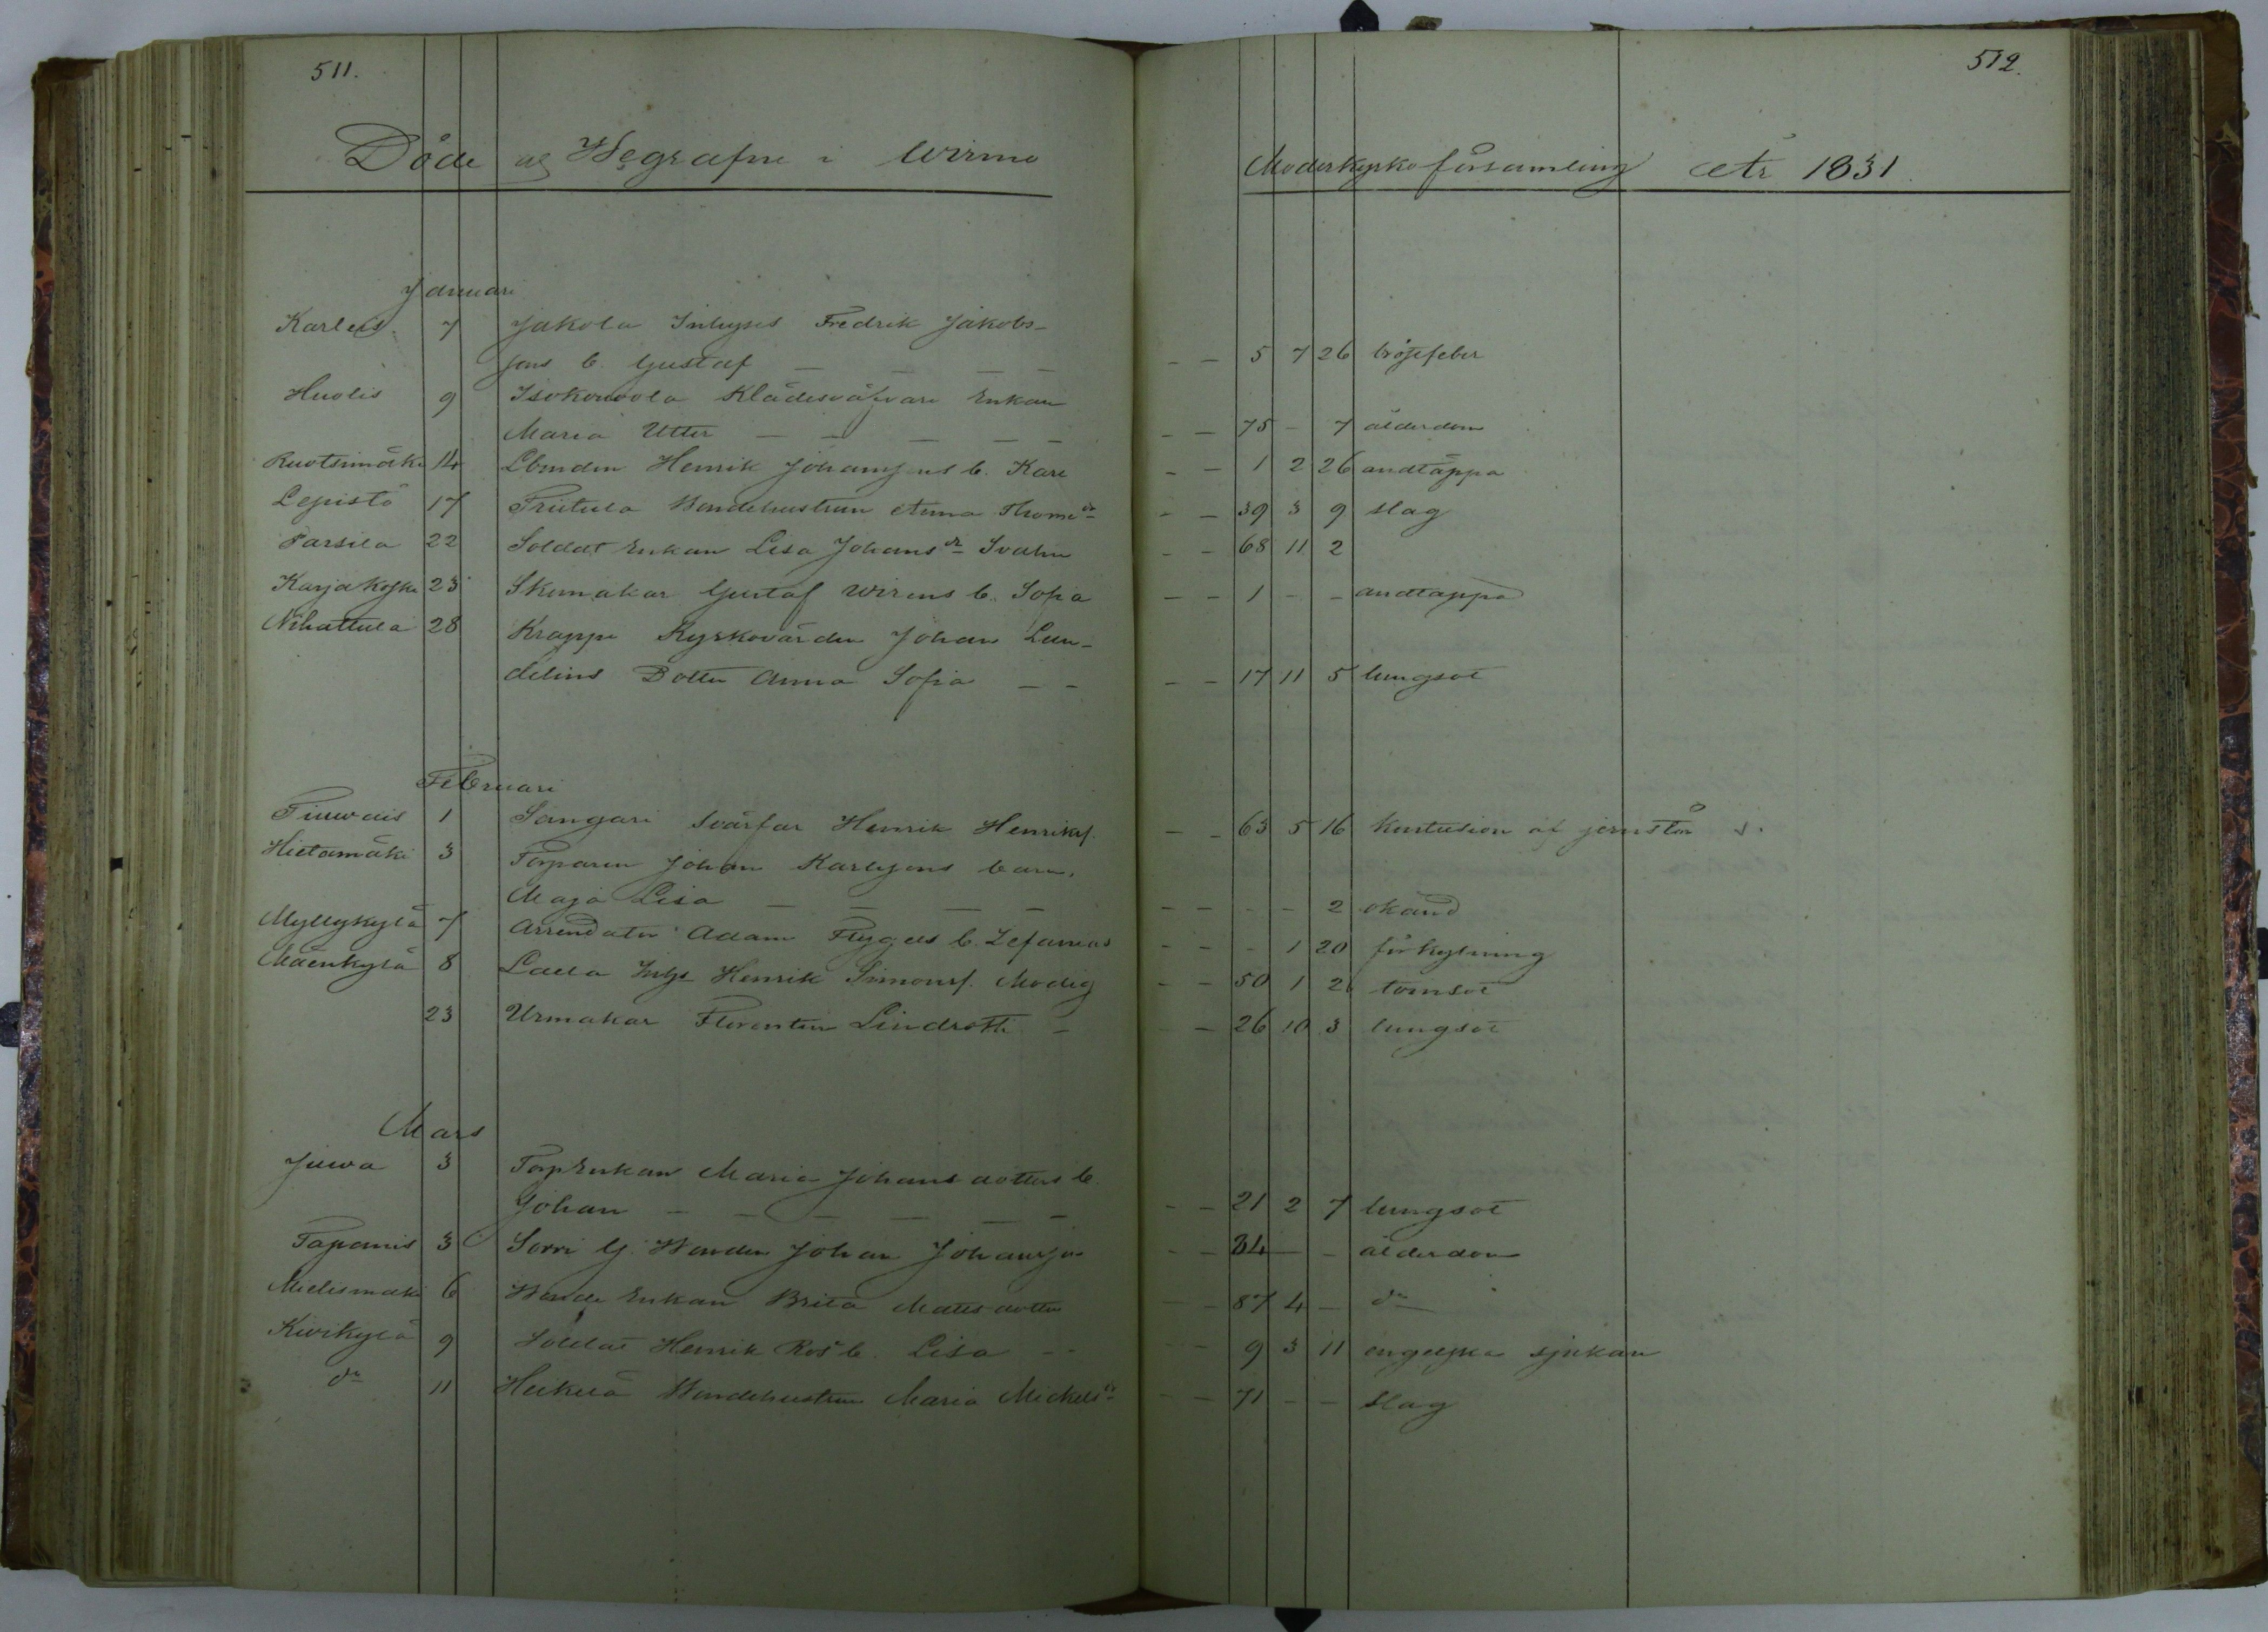 511.
512.
Döde og Begrafne i Wirmo Moderkyrko församling År 1831.
Januari
Karleis 7 Jakola Inhyses Fredrik Jakobs-
sons b. Gustaf — — — — — 5 7 26 bröstfeber
Huolis 9 Isokouvola Klädesväfvare Enkan
Maria Utter — — — — — — 75 - 7 ålderdom
Ruotsimäki 14 Lbonden Henrik Johanssons b. Karl — — 1 2 26 andtäppa
Lepistö 17 Friitula Bondehustrun Anna Thomedr — — 39 3 9 slag
Parsila 22 Soldat Enkan Lisa Johansdr Svahn — — 68 11 2
Karjakoski 23 Skomakar Gustaf Wirens b. Sofia — — 1 - - andtäppa
Nihattula 28 Krappe Kyrkovärden Johan Lun-
delins Dotter Anna Sofia — — — — 17 11 5 lungsot
Februari
Tiuwais 1 Sangari Svärfar Henrik Henriksf. — — 63 5 16 Kontusion af jernstör
Hietamäki 3 Torparen Johan Karlssons barn
Maja Lisa — — — — — — - - 2 okänd
Myllykylä 7 Arrendator Adam Flygels b. Zefanias — — - 1 20 förkylning
Mäenkylä 8 Laula Inhs Henrik Simonsf. Modig — — 50 1 2 tornsot
23 Urmakar Florentin Lindroth — — 26 10 3 lungsot
Mars
Juwa 3 TorpEnkan Maria Johansdotters b.
Johan — — — — — — — — 21 2 7 lungsot
Tapanis 3 Sorri G. Bonden Johan Johansson — — 84 — - ålderdom
Mielismäki 6 Bonde Enkan Brita Matsdotter — — 87 4 - do
Kivikylä 9 Soldat Henrik Ros b. Lisa — — — 9 3 11 engelska sjukan
do 11 Heikilä Bondehustrun Maria Mickelsdr — — 71 - - slag